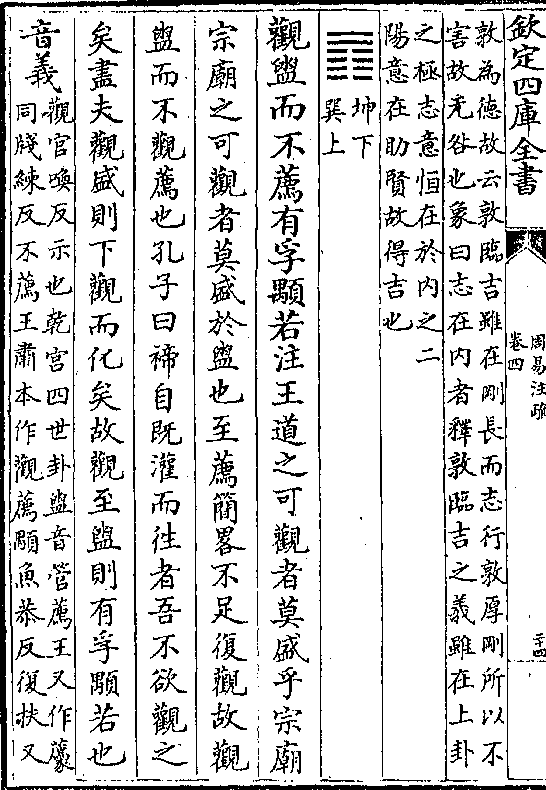 欽定四庫全書
周易注疏
卷四
二十四
敦為徳故云敦臨吉雖在剛長而志行敦厚剛所以不
害故无咎也象曰志在内者釋敦臨吉之義雖在上卦
之極志意恒在於内之二
陽意在助賢故得吉也
坤下
巽上
觀盥而不薦有孚顒若注王道之可觀者莫盛乎宗廟
宗廟之可觀者莫盛於盥也至薦簡畧不足復觀故觀
盥而不觀薦也孔子曰禘自既灌而往者吾不欲觀之
矣盡夫觀盛則下觀而化矣故觀至盥則有孚顒若也
音義
觀官喚反示也乾宫四世卦盥音管薦王又作藨
同牋練反不薦王肅本作觀薦顒魚恭反復扶又